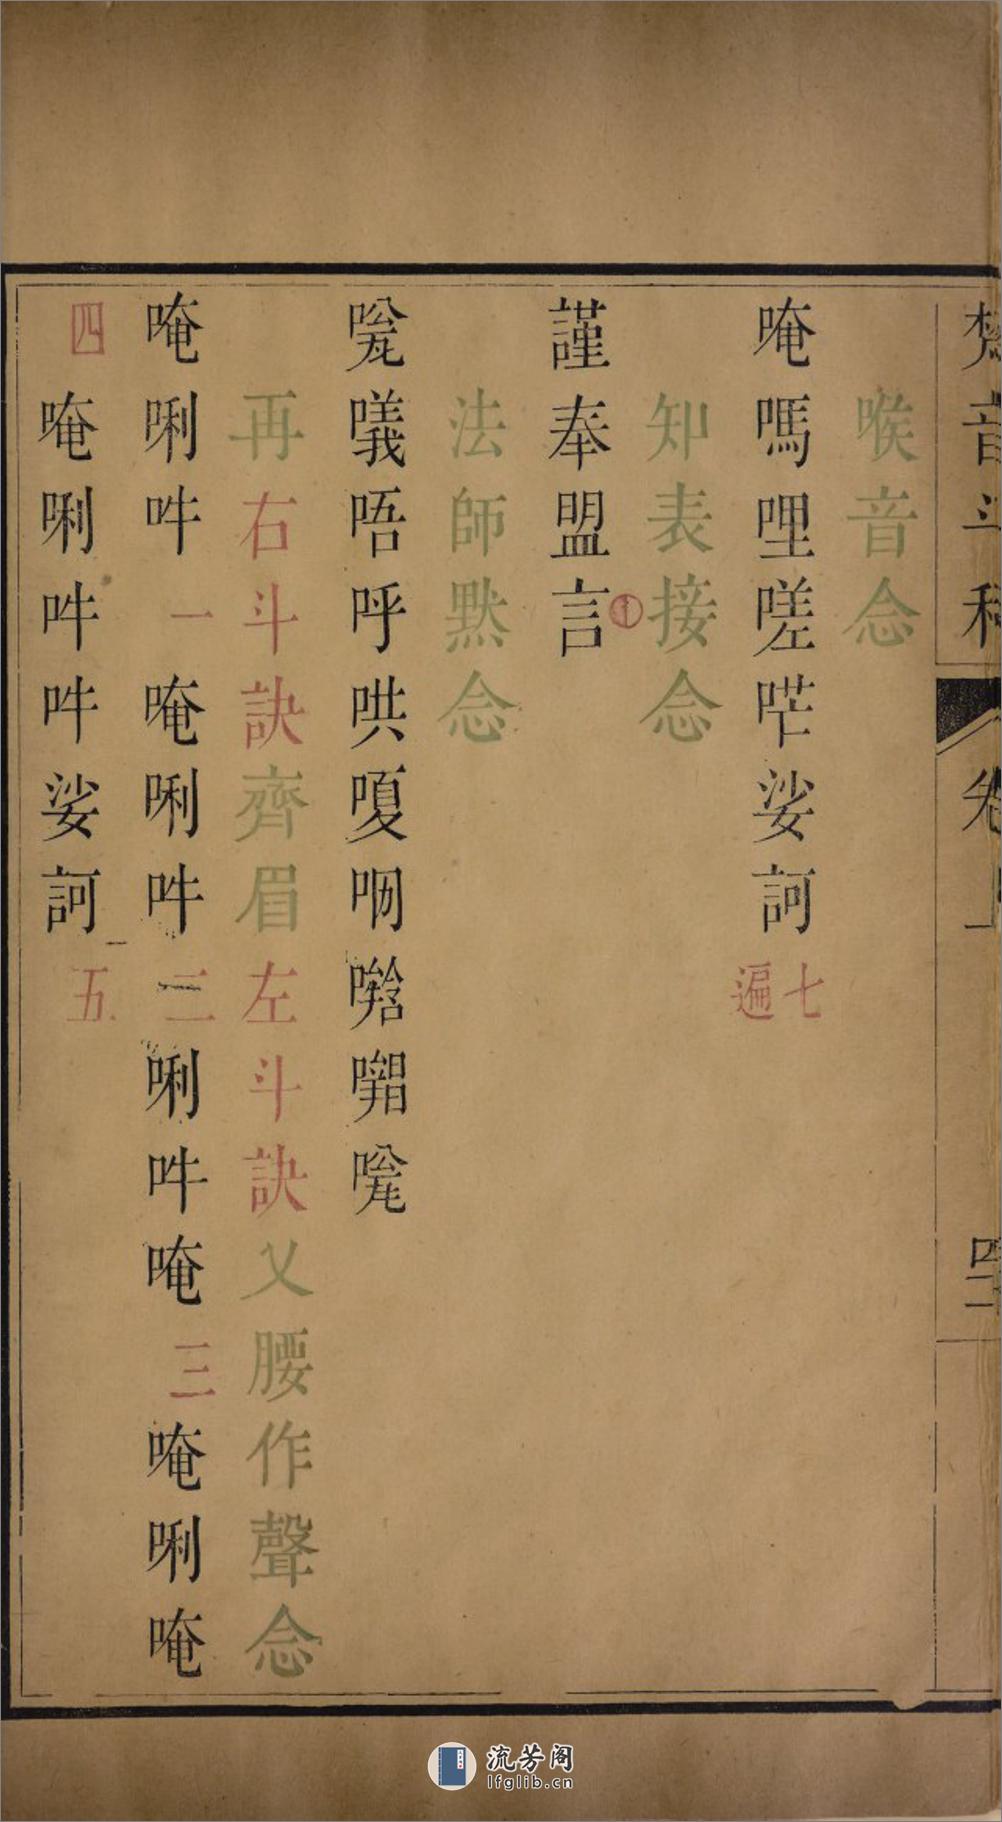 梵音斗科 卷上 四二
喉音念
唵嗎哩嗟𠰷娑訶七遍
知表接念
謹奉盟言
法師默念
嚨㬢唔呼哄嗄㗅
再右斗訣齊眉左斗訣乂腰作聲念
唵唎吽一唵唎吽二唎吽唵三唵唎唵
四唵唎吽吽娑訶五
流芳阁
lfglib.cn